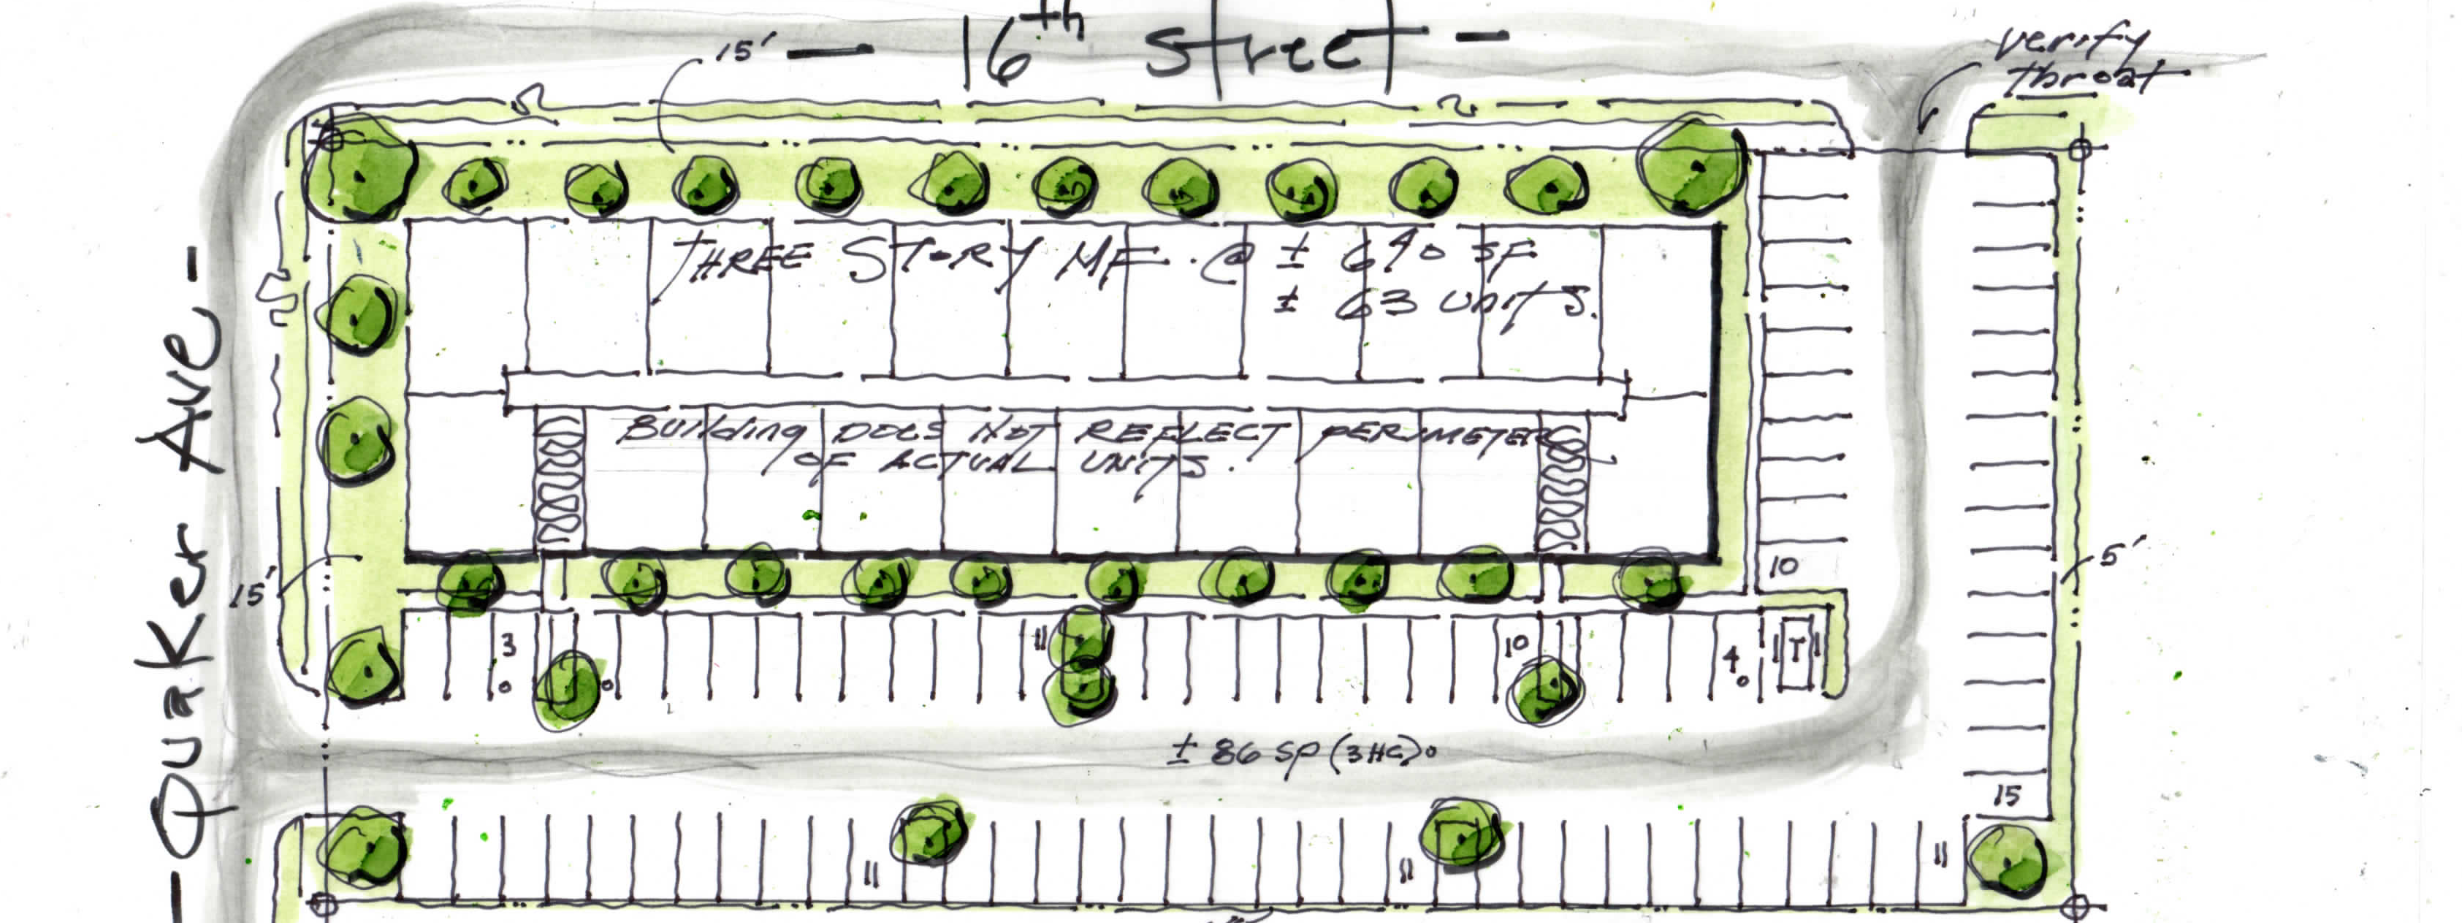 — 16th Street —
15'
verify
throat
THREE STORY MF. @ ± 690 SF
± 63 units.
Building DOES NOT REFLECT PERIMETER
OF ACTUAL UNITS.
— Quaker Ave —
15'
5'
10
3
11
10
4
T
± 86 SP (3HC)
15
11
11
11